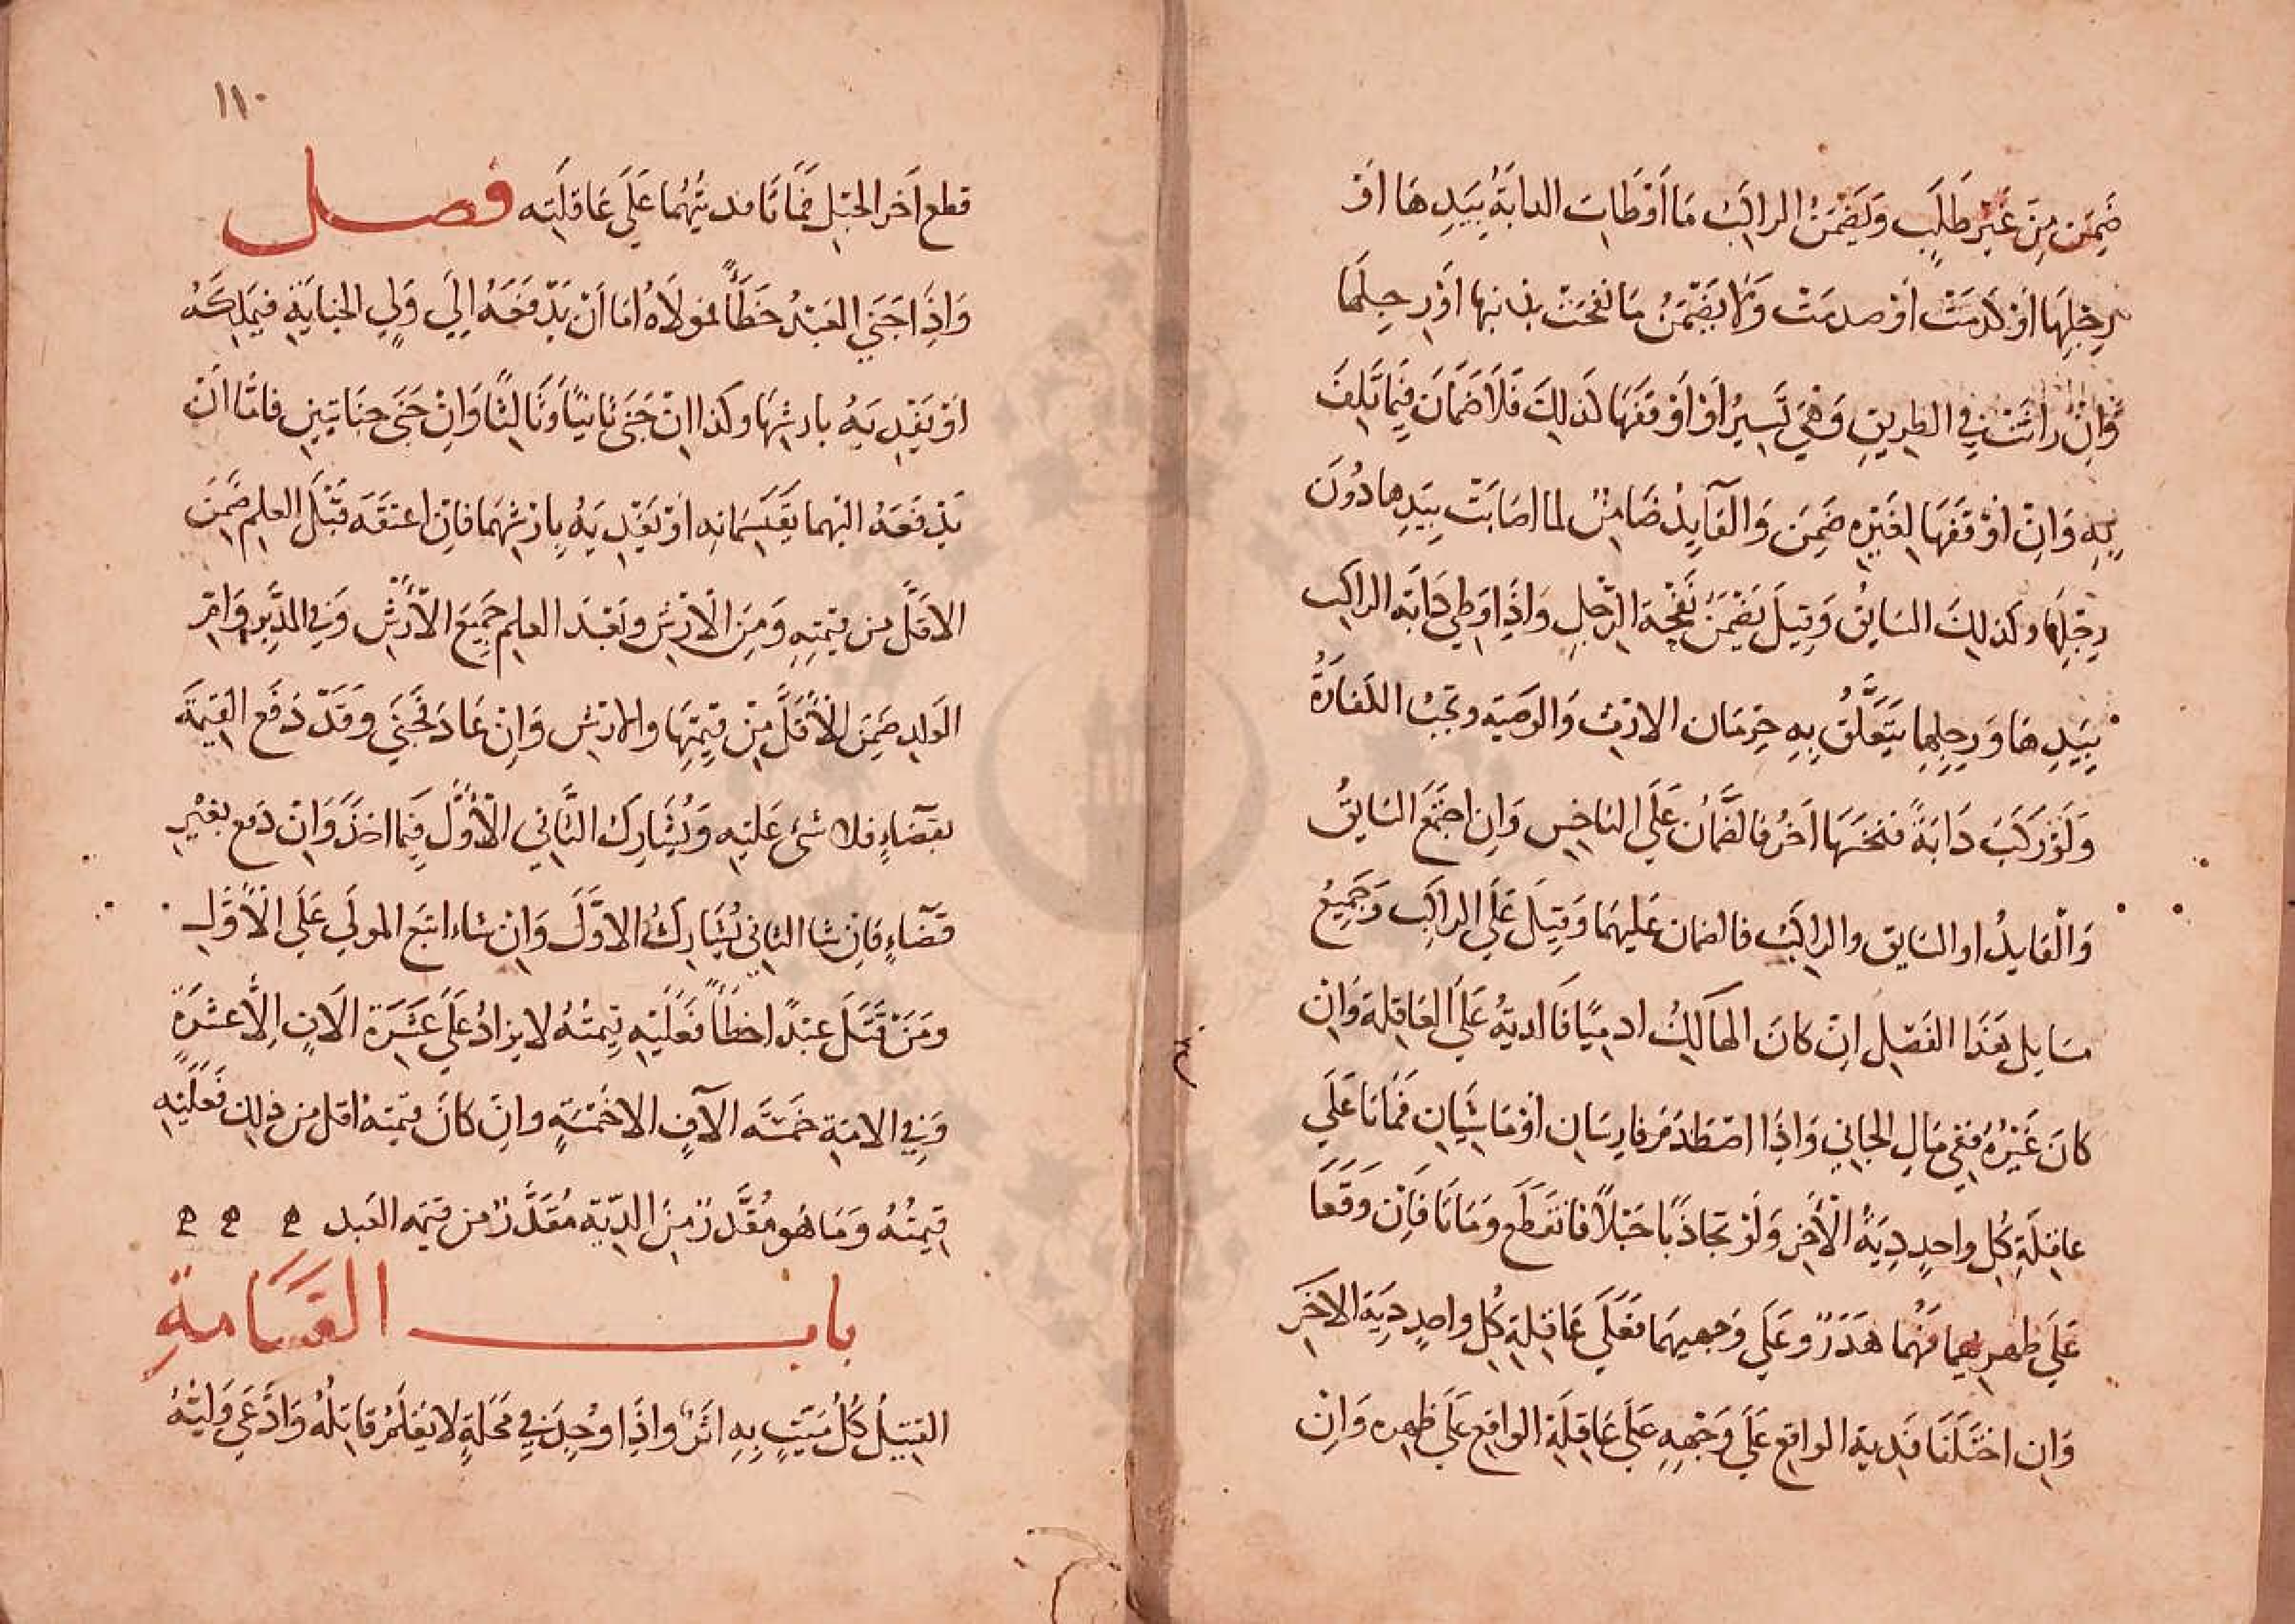 ضَمِنَ مِنَ غَيْرِ طَلَبٍ وَيَضْمَنُ الراكِبُ مَا أَوْطَات الدابَةُ بِيَدِها اوْ
رِجْلِهَا اَوْ كَدَمَتْ اَوْ صدمَتْ وَلَا يَضْمَنُ مَا نفحَتْ بذنبها اوْ رِجلهَا
وَانْ رَاثَتْ فِي الطَرِيقِ وَهْيَ تَسِيرُ اَوْ اَوْقفَهَا لذلِكَ فَلَا ضَمَانَ فِيمَا تَلِفَ
بِهِ وَانْ اوْقَفَهَا لِغَيْرِهِ ضَمِنَ وَالقَآيِدُ ضَامِنٌ لما اصَابَتْ بِيَدِها دُونَ
رِجْلِهَا وكذلِكَ السَايِقُ وَقِيلَ يَضْمَنُ نَفْحَةَ الرِّجلِ وَاذَا اوَطِي دَابَة الراكِب
بِيَدِهَا وَرِجلِها يَتَعَلَّقُ بِهِ حِرْمَان الارْث وَالوَصَيَة وتجبُ الكفارَةُ
وَلَوْ رَكَبَ دَابَةً فنخسَهَا اَخَرُ فالضَمَانُ عَلَي النَاخِسِ وَاِن اجتَمعَ السَايِقُ
وَالْقَايِدُ او السَايق والراكبُ فالضمان عَلَيهِمَا وَقِيلَ عَلَي الراكِبِ وَجَمِيعُ
مسَايل هَذَا الفَصْلِ انْ كانَ الهَالِكُ ادمِيًا فَالديَةُ عَلَي العَاقِلَة وَانْ
كانَ غَيْرُهُ فَفِي مَالِ الجاني وَاذَا اصْطدَمَ فارِسَانِ اَوْ مَاشِيَانِ فَمَاتَا عَلَي
عاقِلَةِ كُلِ واحِدٍ دِيَةُ الْاَخَرِ وَلَوْ تجَاذَبَا حَبْلاً فانقَطَعَ وَمَاتَا فَاِنْ وَقَعَا
عَلَي ظهرِيهِما فَهُما هَدَرٌ وعَلَي وَجهيهمَا فَعَلَي عَاقِلَةِ كُلِ واحدٍ دِيَة الاخَرِ
وَان اختَلَفَا فَدية الواقِع عَلَي وَجْهِهِ عَلَي عَاقِلَةِ الواقِع عَلَي ظهره وَاِنْ
١١٠
قطع اَخر الحَبْلِ فَمَاتَا فديَتُهُما عَلَي عَاقلَتِه فصل
وَاذَا جَنَي العَبْدُ خَطَأً فمولَاهُ امَا اَنْ يَدْفَعَهُ اِلَي وَلِي الجنايَةِ فيَمْلِكَهُ
اَوْ يَفْدِيَهُ بارشِهَا وكذا انْ جَنَي ثانيًا وَثَالِثًا وَاِنْ جَنَي جنَايَتيْنِ فامَّا اَنْ
يَدْفَعَهُ اليْهما يَقْتَسِمَانِه اَوْ يَفْدِيَهُ بِارْشِهمَا فَاِنْ اعتقَهَ قَبْلَ العلمِ ضَمِنَ
الاقَلَّ من قيمتِهِ وَمِنَ الْارْشِ وبَعْدَ العِلمِ جَمِيعَ الْاَرْشِ وَفِي المدَبَّرِ وَامِّ
الوَلدِ ضَمِنَ الْأَقَلَّ مِنْ قِيمَتِهَا والارْشِ وَاِنْ عَادَ فَجَنَي وَقَدْ دَفَع القِيمَةَ
بقَضَآءٍ فلا شئ عَلَيْهِ وَيُشَارِك الثَّانِي الْاَوَّلَ فِيمَا اخذَ وَانْ دَفع بغَيْرِ
قَضَآءٍ فَاِنْ شا الثاني يُشَارِكُ الاوَّلَ وَاِنْ شاء اتبَعَ المولَي عَلَي الْاَوَّلِ
ومَنْ قَتَلَ عبْدًا خطَأً فَعَلَيْهِ قيمتُهُ لا يزادُ عَلَي عَشَرَة الَاف اِلَّا عَشَرَةً
وَفِي الامَةِ خَمْسَة الآفٍ الاخَمْسَةٍ وانْ كانَ قيمتهُ اقل من ذلِك فَعَلَيْهِ
قِيمتُهُ وَمَا هُو مُقَدَّرٌ مِنَ الدِيَةِ مُقَدَّرٌ من قيمَه العَبد
باب القَسَامةِ
القتِيلُ كُلُ مَيِّتٍ بِهِ اثَرٌ وَاذَا وُجِدَ فِي مَحَلَةٍ لا يَعْلَمُ قاتِلُهُ وَادَّعَي وَليّهُ